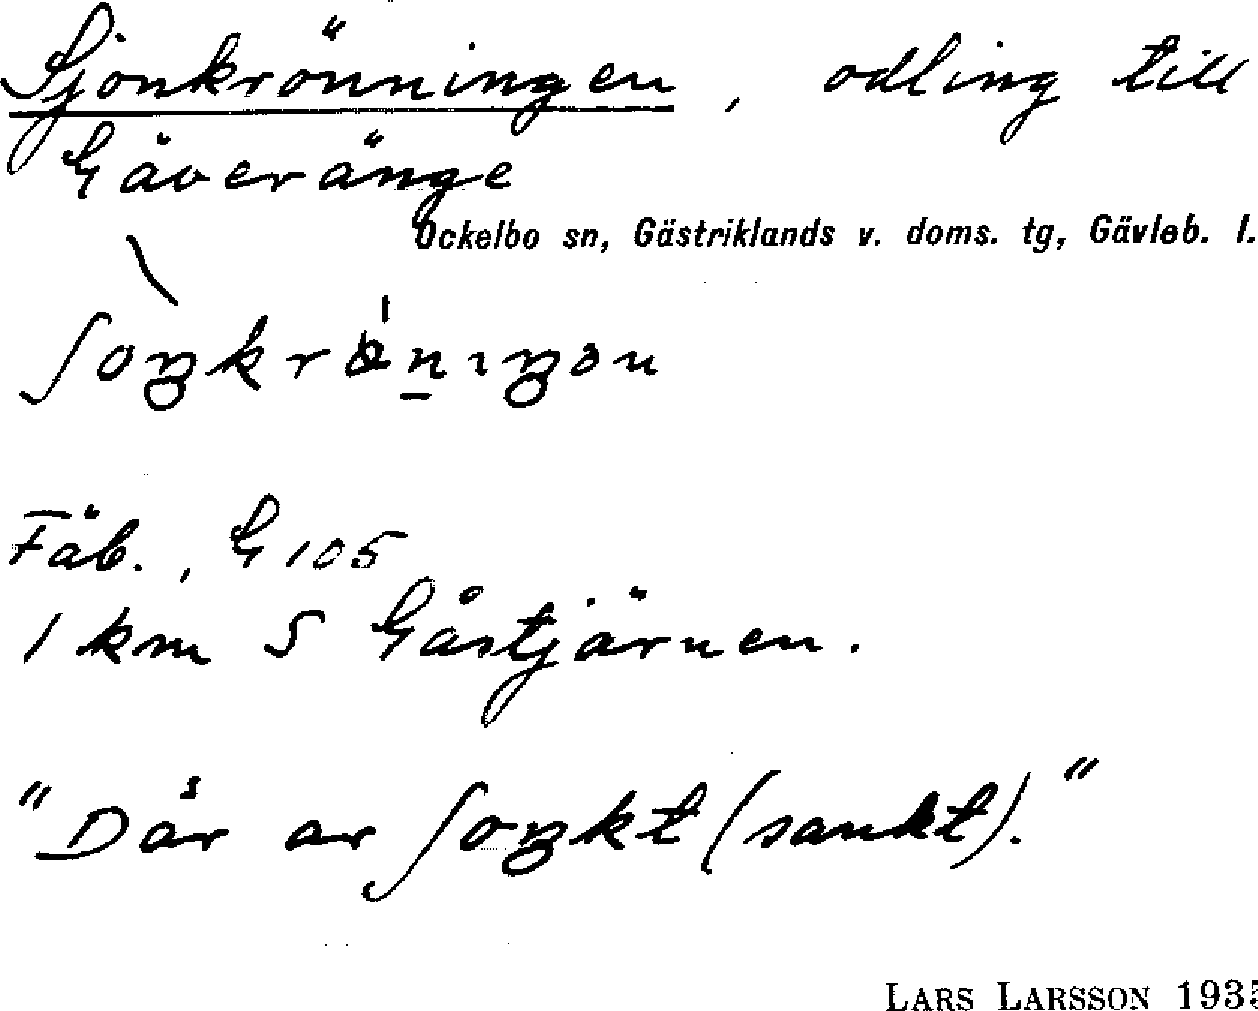 Sjonkrönningen, odling till
Gäveränge
Ockelbo sn, Gästriklands v. doms. tg, Gävleb. l.
Fäb., G 105
1 km S Gåstjärnen.
"Där ar ʃoŋkt (sankt)."
LARS LARSSON 1935